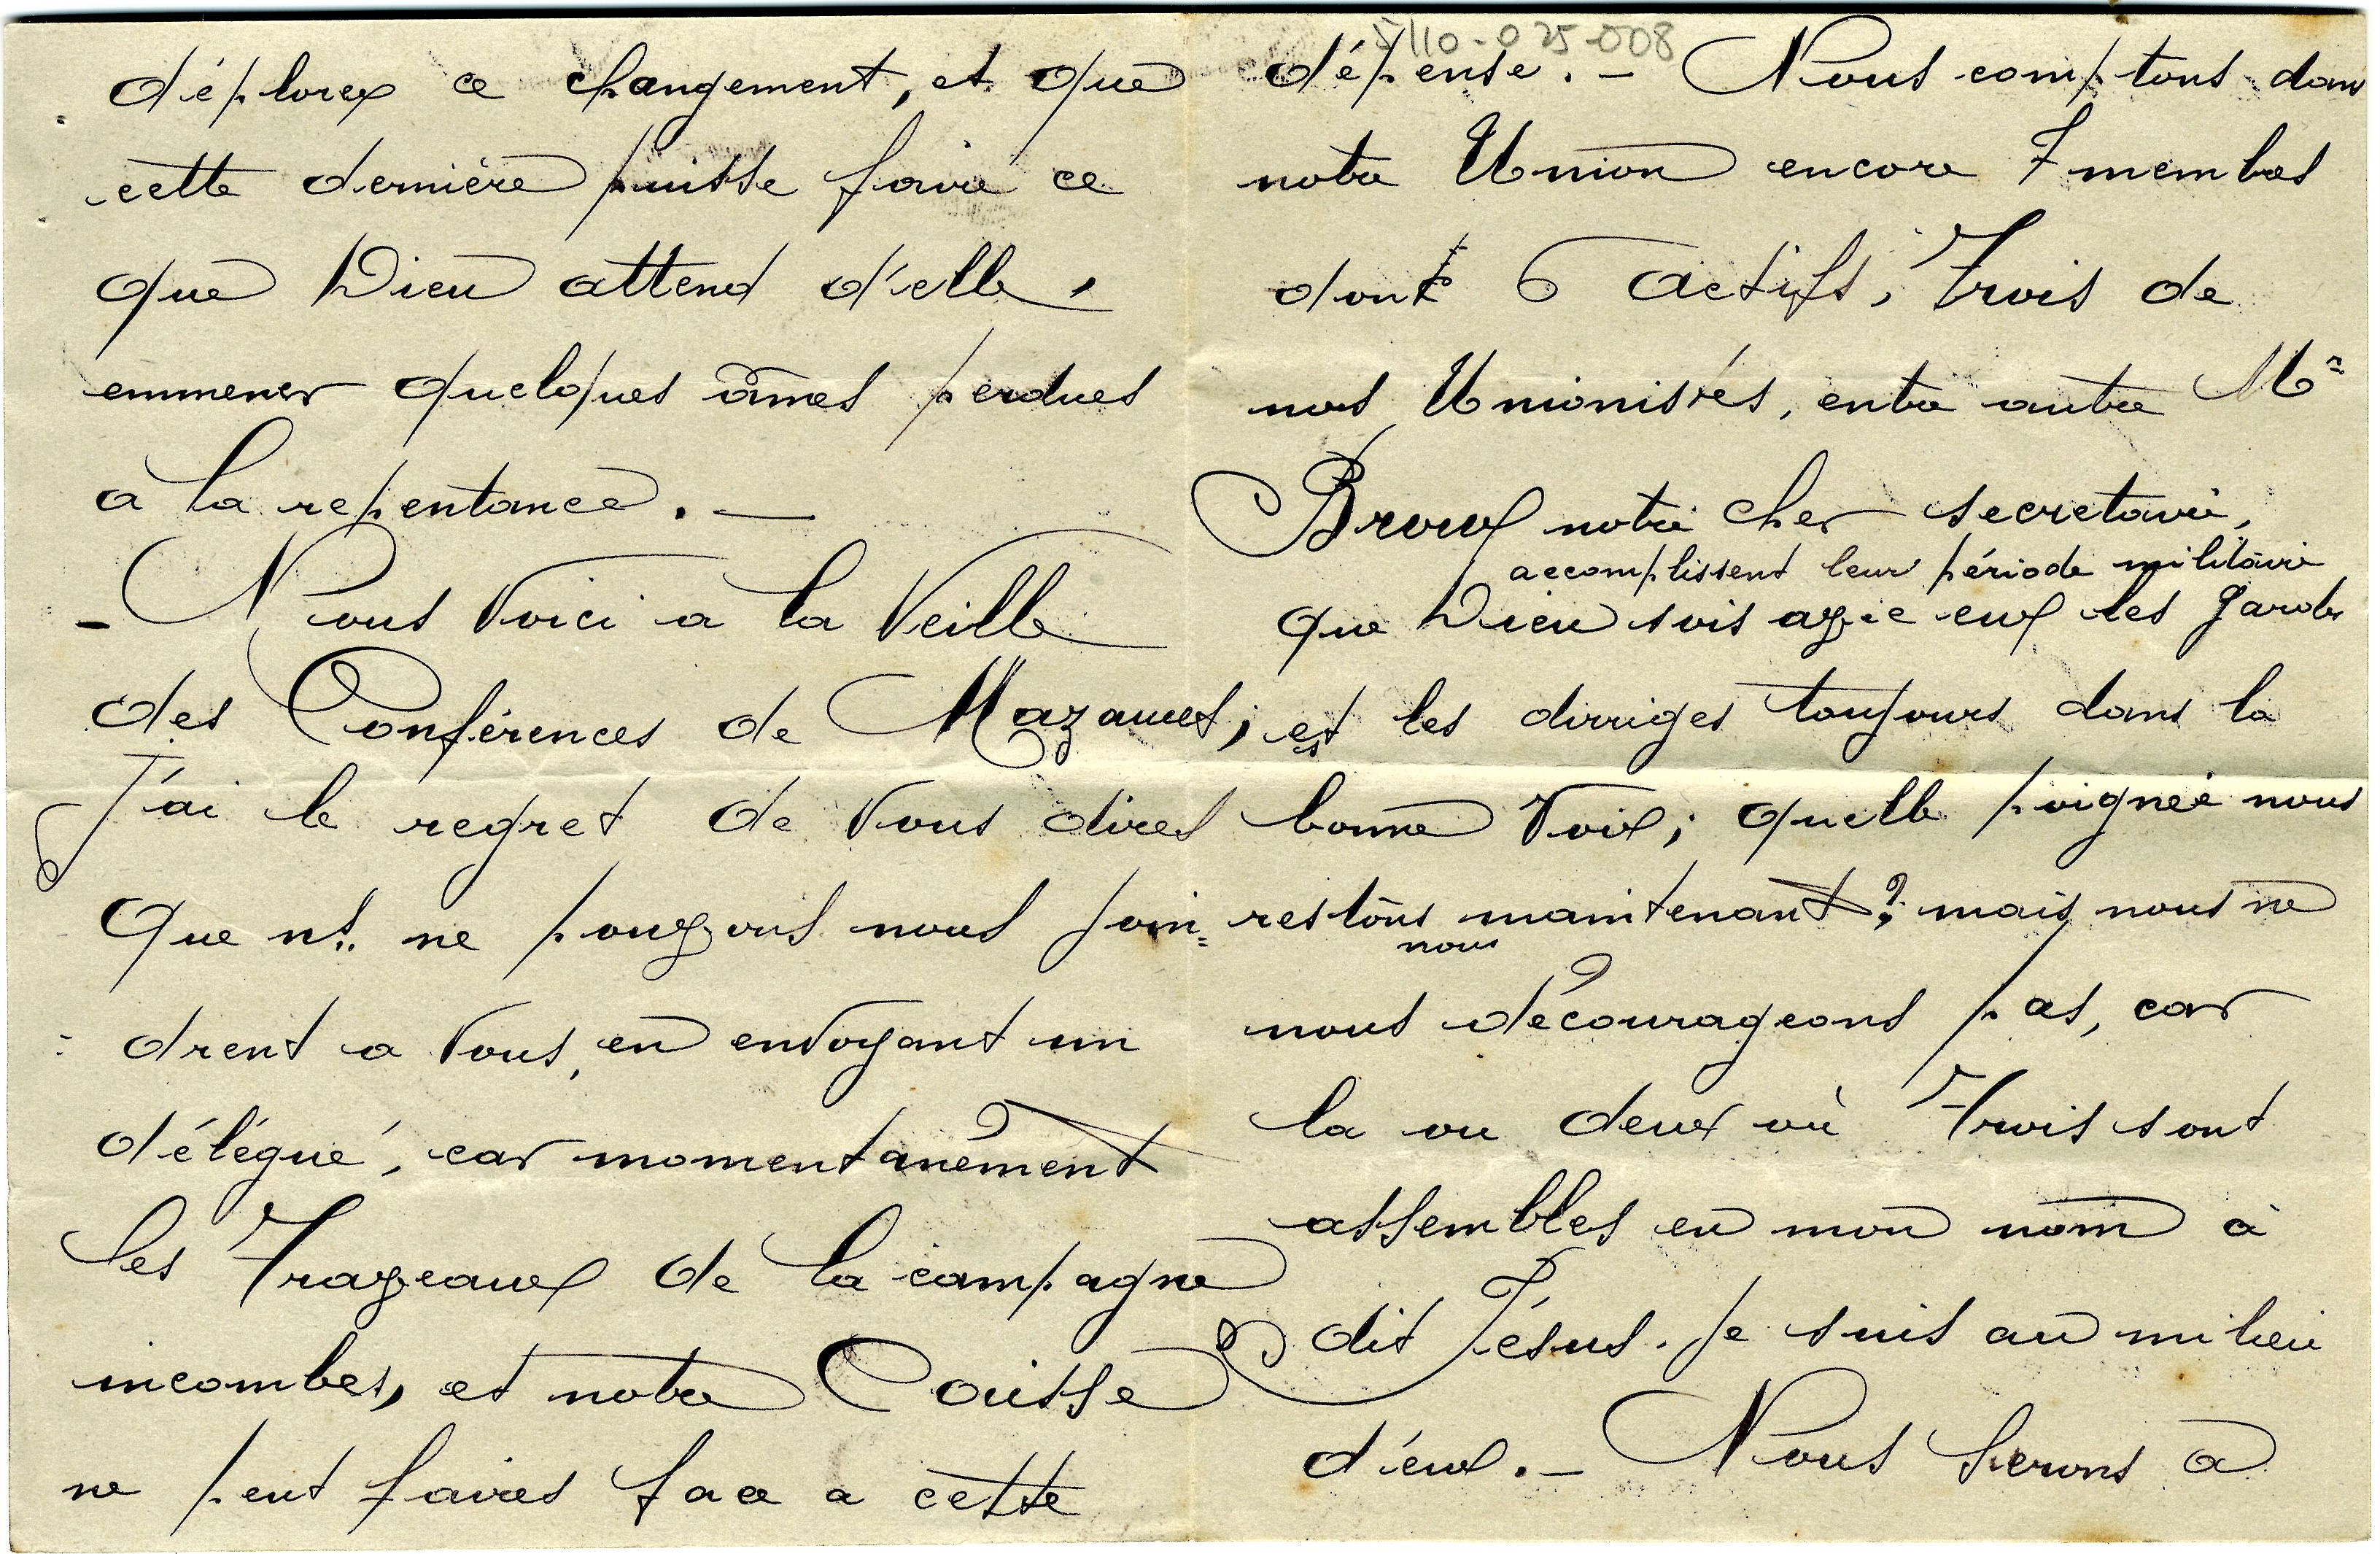 déplorez ce changement, et que
cette dernière puisse faire ce
que Dieu attend d'elle,
emmener quelques âmes perdues
a la repentance. —
– Nous voici a la Veille
des Conférences de Mazamet;
J'ai le regret de vous dires
Que ns. ne pouvons nous join=
=drent a vous, en envoyant un
délégué, car momentanément
les Traveaux de la campagne
incombes, et notre Caisse
ne peut faires face a cette
5/110-025-008
dépense. – Nous comptons dans
notre Union encore 7 membres
dont 6 actifs, Trois de
nos Unionistes, entre autre Mr
notre cher secretaire,
accomplissent leur période militaire
que Dieu sois avec eux les garde
est les diriges toujours dans la
bonne Voix; quelle poignée nous
restons nous maintenant? mais nous ne
nous décourageons pas, car
la ou deux où Trois sont
assembles en mon nom à
dit Jésus. Je suis au milieu
d'eux. – Nous serons a